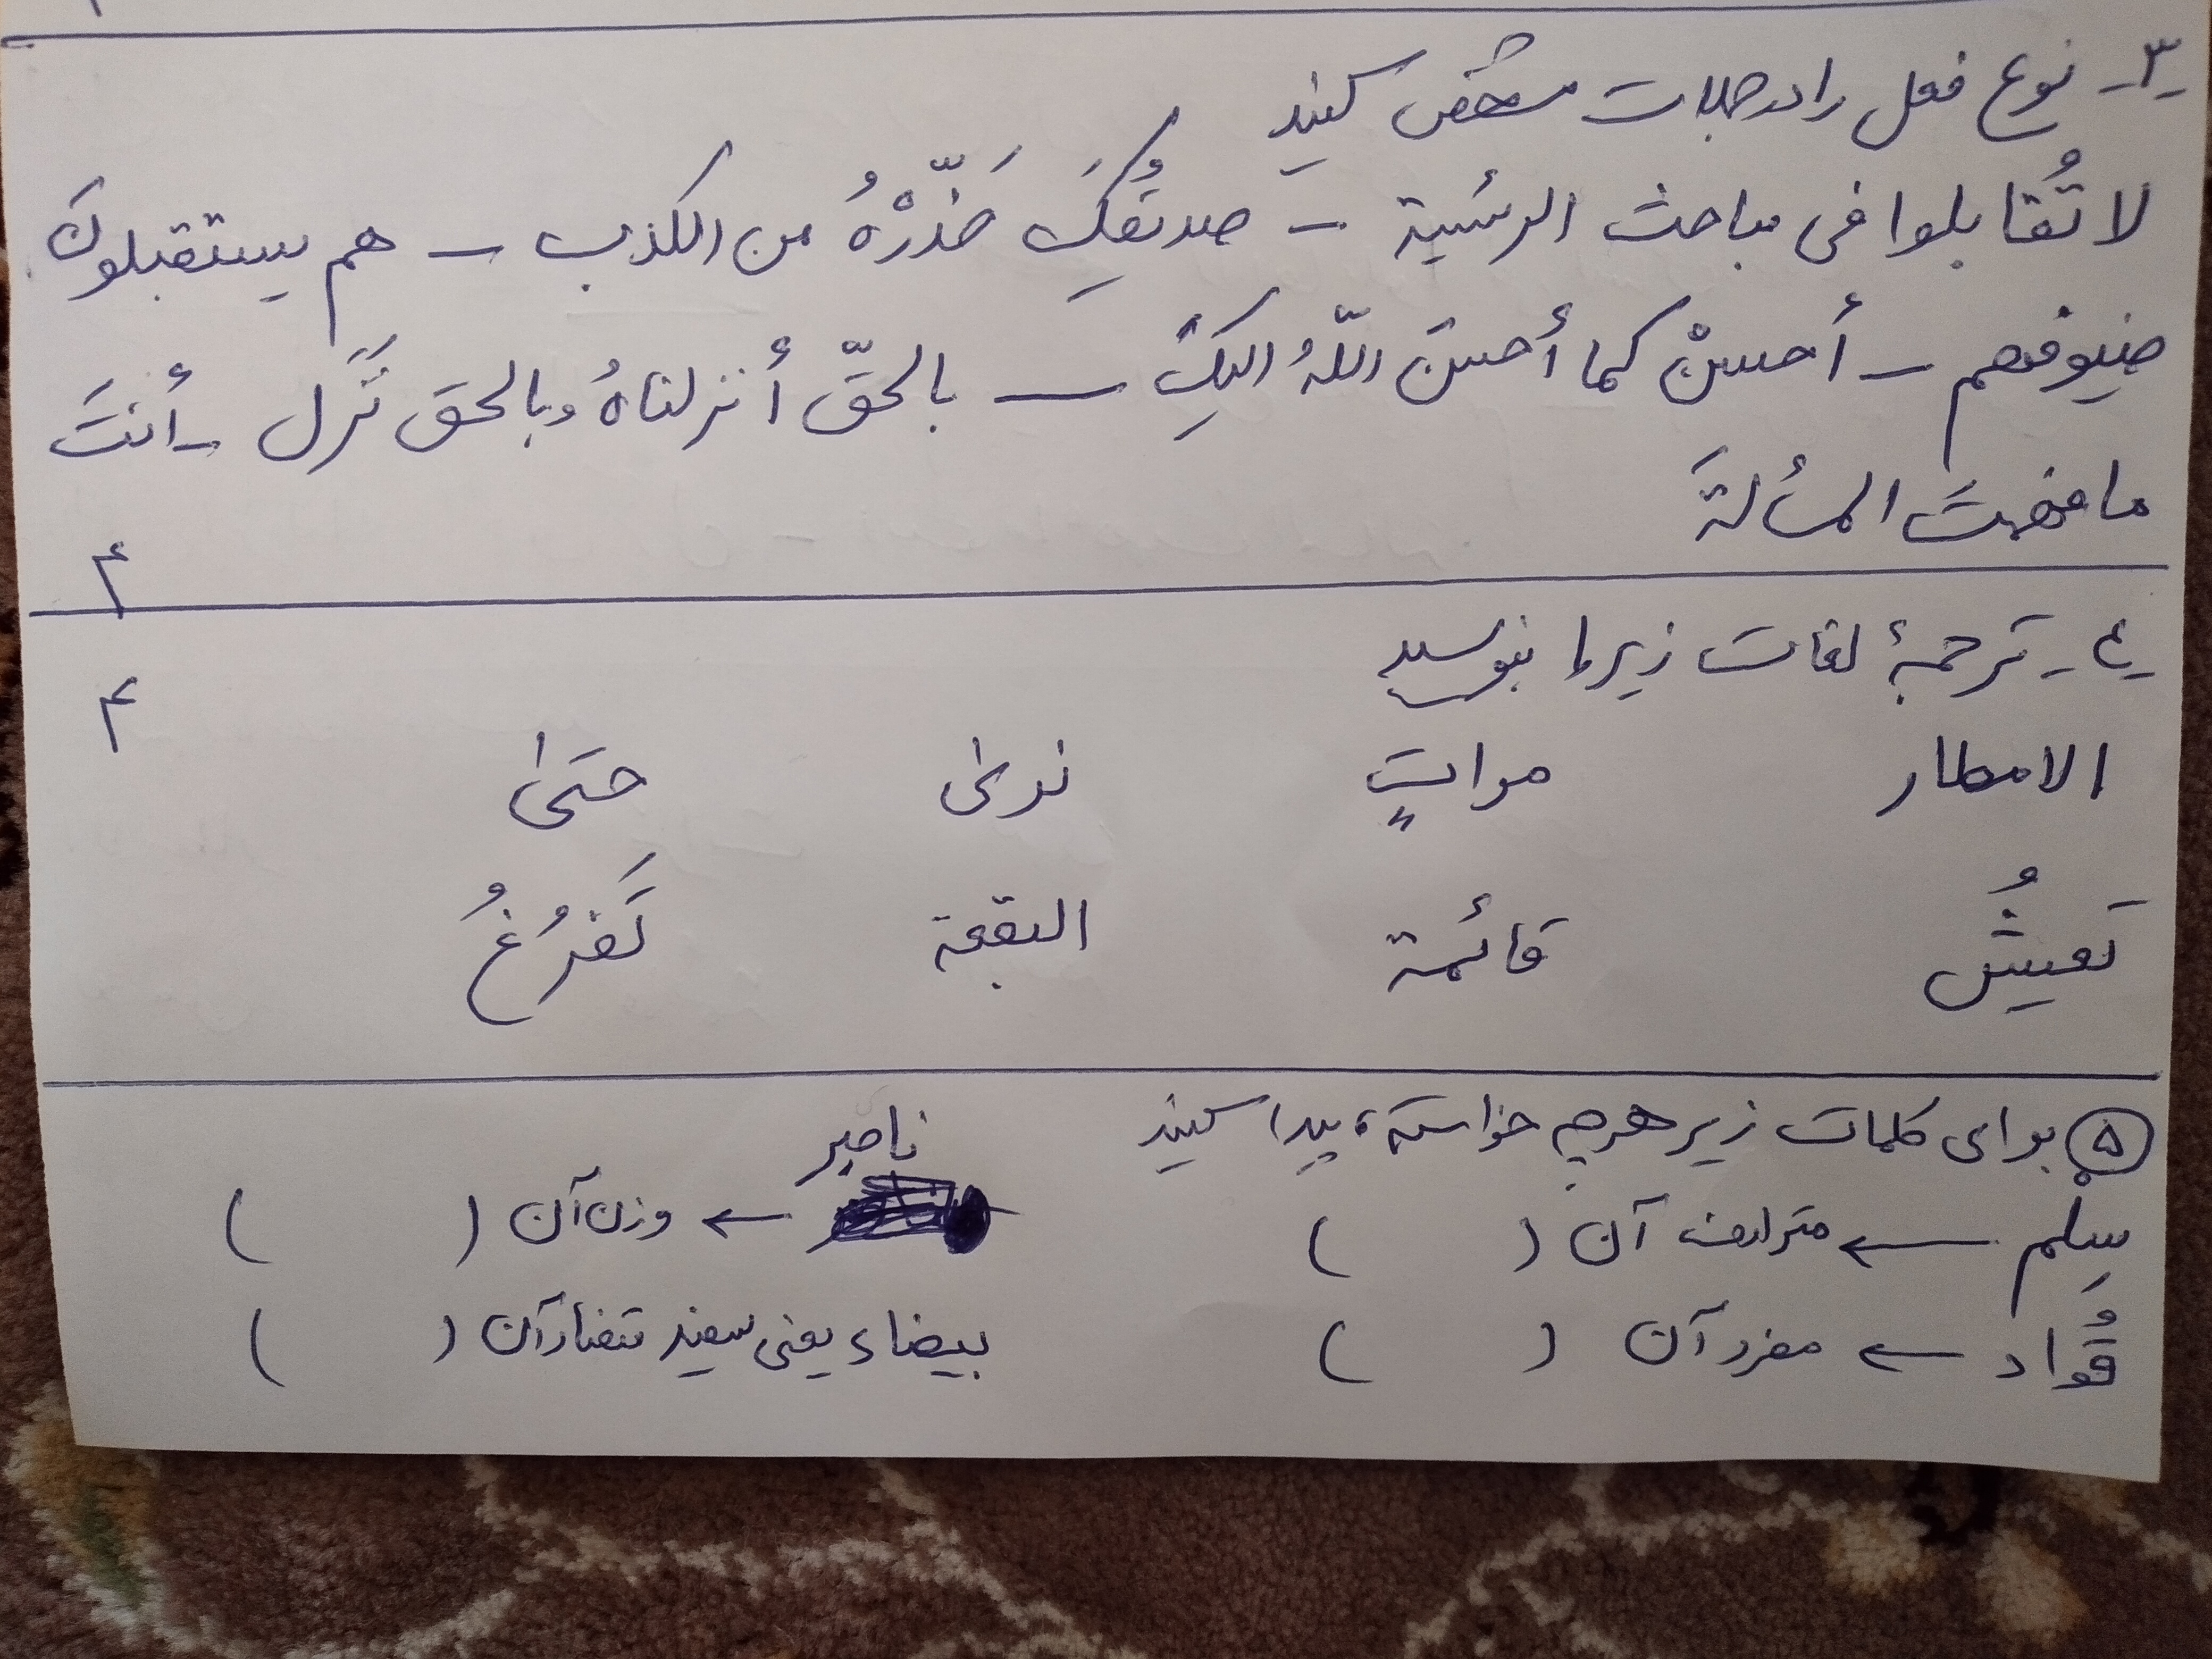 ۳- نوع فعل را در جملات مشخص کنید
لا تُقابلوا فی مباحث الرئسیة - صدیقُکَ حَذّرْهُ من الکذب - هم یستقبلونَ
ضیوفهم - أحسنْ کما أحسنَ اللّهُ الیکَ - بالحقّ أنزلناهُ وبالحق نَزَل - أنتَ
ما فهمتَ المسألةَ
۴
٤- ترجمهٔ لغات زیر را بنویسید
۴
الامطار مراتٍ نریٰ حتیٰ
تَعیشُ قائمة البقعة تَفرُغُ
۵ برای کلمات زیر هرچه خواسته، پیدا کنید
سِلْم ← مترادف آن ( ) ناصر ← وزن آن ( )
قُواد ← مفرد آن ( ) بیضاء یعنی سفید متضاد آن ( )